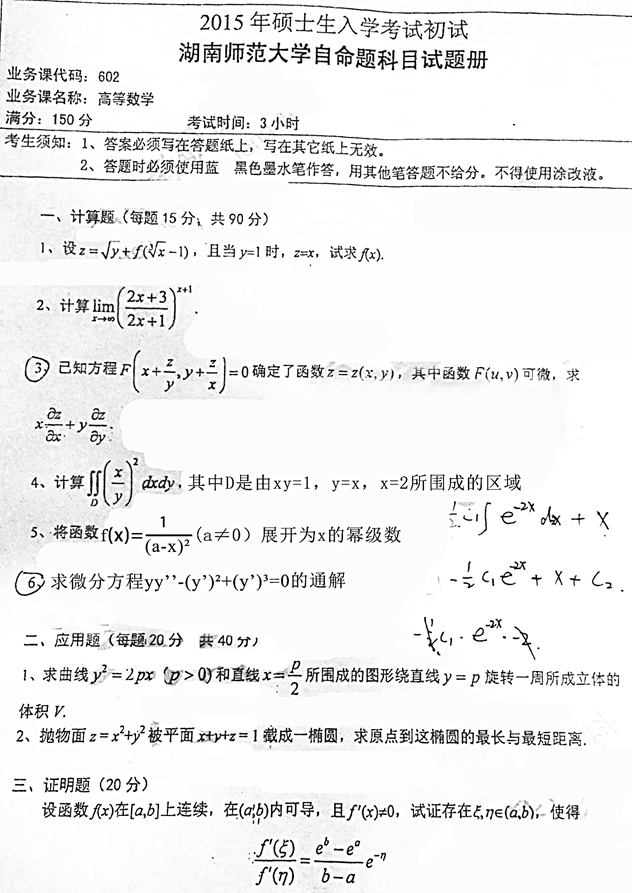 2015年硕士生入学考试初试
湖南师范大学自命题科目试题册
业务课代码：602
业务课名称：高等数学
满分：150分 考试时间：3小时
考生须知：1、答案必须写在答题纸上，写在其它纸上无效。
2、答题时必须使用蓝 黑色墨水笔作答，用其他笔答题不给分。不得使用涂改液。
一、计算题（每题15分，共90分）
1、设z=√y+f(∛x-1)，且当y=1时，z=x，试求f(x).
2、计算lim_{x→∞}((2x+3)/(2x+1))^{x+1}.
3、已知方程F(x+z/y, y+z/x)=0确定了函数z=z(x,y)，其中函数F(u,v)可微，求
x ∂z/∂x + y ∂z/∂y.
4、计算∬_D (x/y)² dxdy，其中D是由xy=1，y=x，x=2所围成的区域
5、将函数f(x)=1/(a-x)²(a≠0）展开为x的幂级数
½c₁∫e^{-2x}dx + x
6、求微分方程yy’’-(y’)²+(y’)³=0的通解
-½c₁e^{-2x}+x+c₂.
-½c₁·e^{-2x}·-2.
二、应用题（每题20分 共40分）
1、求曲线y²=2px（p>0)和直线x=p/2所围成的图形绕直线y=p旋转一周所成立体的
体积V.
2、抛物面z=x²+y²被平面x+y+z=1截成一椭圆，求原点到这椭圆的最长与最短距离.
三、证明题（20分）
设函数f(x)在[a,b]上连续，在(a,b)内可导，且f′(x)≠0，试证存在ξ,η∈(a,b)，使得
f′(ξ)/f′(η)=(e^b-e^a)/(b-a) e^{-η}